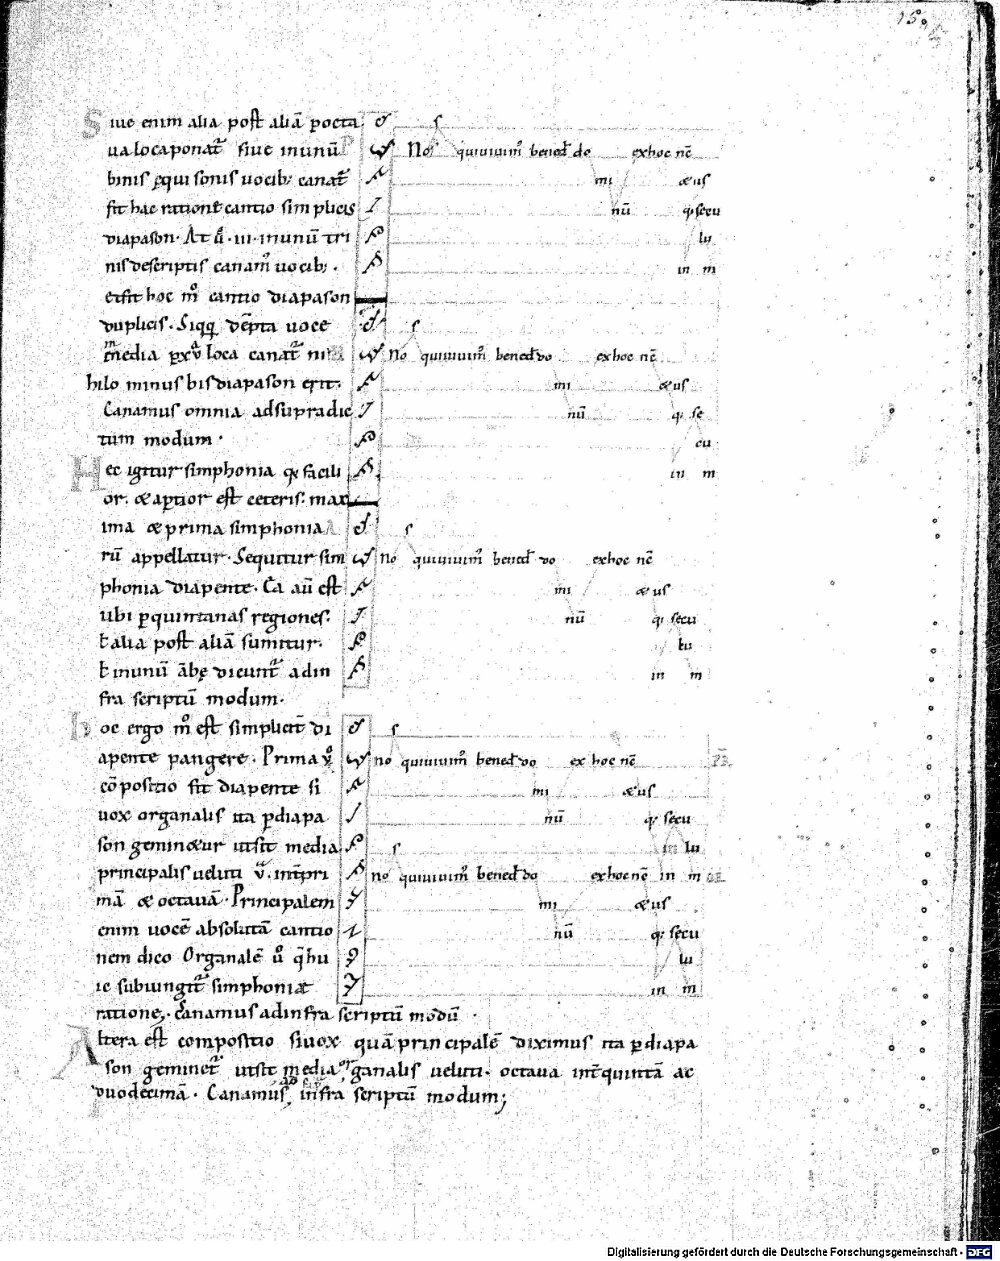 15.
Siue enim alia post aliā pocta
ua loca ponat᷑ siue inunū
binis ęqui sonis uocib; canat᷑
fit hac ratione cantio simplicis
diapason. At ů .iii. inunū tri
nis descriptis canam᷒ uocib;.
et fit hoc m̊ cantio diapason
duplicis. Siqq dēpta uoce
media
loca canat᷑ ni
hilo minus bis diapason erit.
Canamus omnia ad supradic
tum modum.
Hec igitur simphonia q; facili
or. & aptior est ceteris. max
ima & prima simphonia
rū appellatur. Sequitur sim
phonia diapente. Ea aū est
ubi p quintanas regiones.
ł alia post aliā sumitur.
ł inunū ābę dicunt᷑ ad in
fra scriptū modum.
hoc ergo m̊ est simplicit̄ di
apente pangere. Prima ů
cōpositio fit diapente si
uox organalis ita p diapa
son gemin&ur ut sit media
principalis ueluti .v. int̄ pri
mā & octauā. Principalem
enim uocē absolutā cantio
nem dico Organalē ů q̄ hu
ic subiungit᷑ simphoniae
ratione. Canamus ad infra scriptū modū.
Altera est compositio si uox quā principalē diximus ita p diapa
son geminet᷑ ut sit media organalis ueluti. octaua int̄ quintā ac
duodecimā. Canamus infra scriptū modum;
Nos qui uiuim᷒ bened do ex hoc nē
mi &us
nū q; secu
lu
in m
s
No qui uiuim᷒ bened do ex hoc nē
mi &us
nū q; se
cu
in m
s
No qui uiuim᷒ bened do ex hoc nē
mi &us
nū q; secu
lu
in m
s
no qui uiuim᷒ bened do ex hoc nē
mi &us
nū q; secu
in lu
s
no qui uiuim᷒ bened do ex hoc nē in m
mi &us
nū q; secu
lu
in m
Digitalisierung gefördert durch die Deutsche Forschungsgemeinschaft - DFG